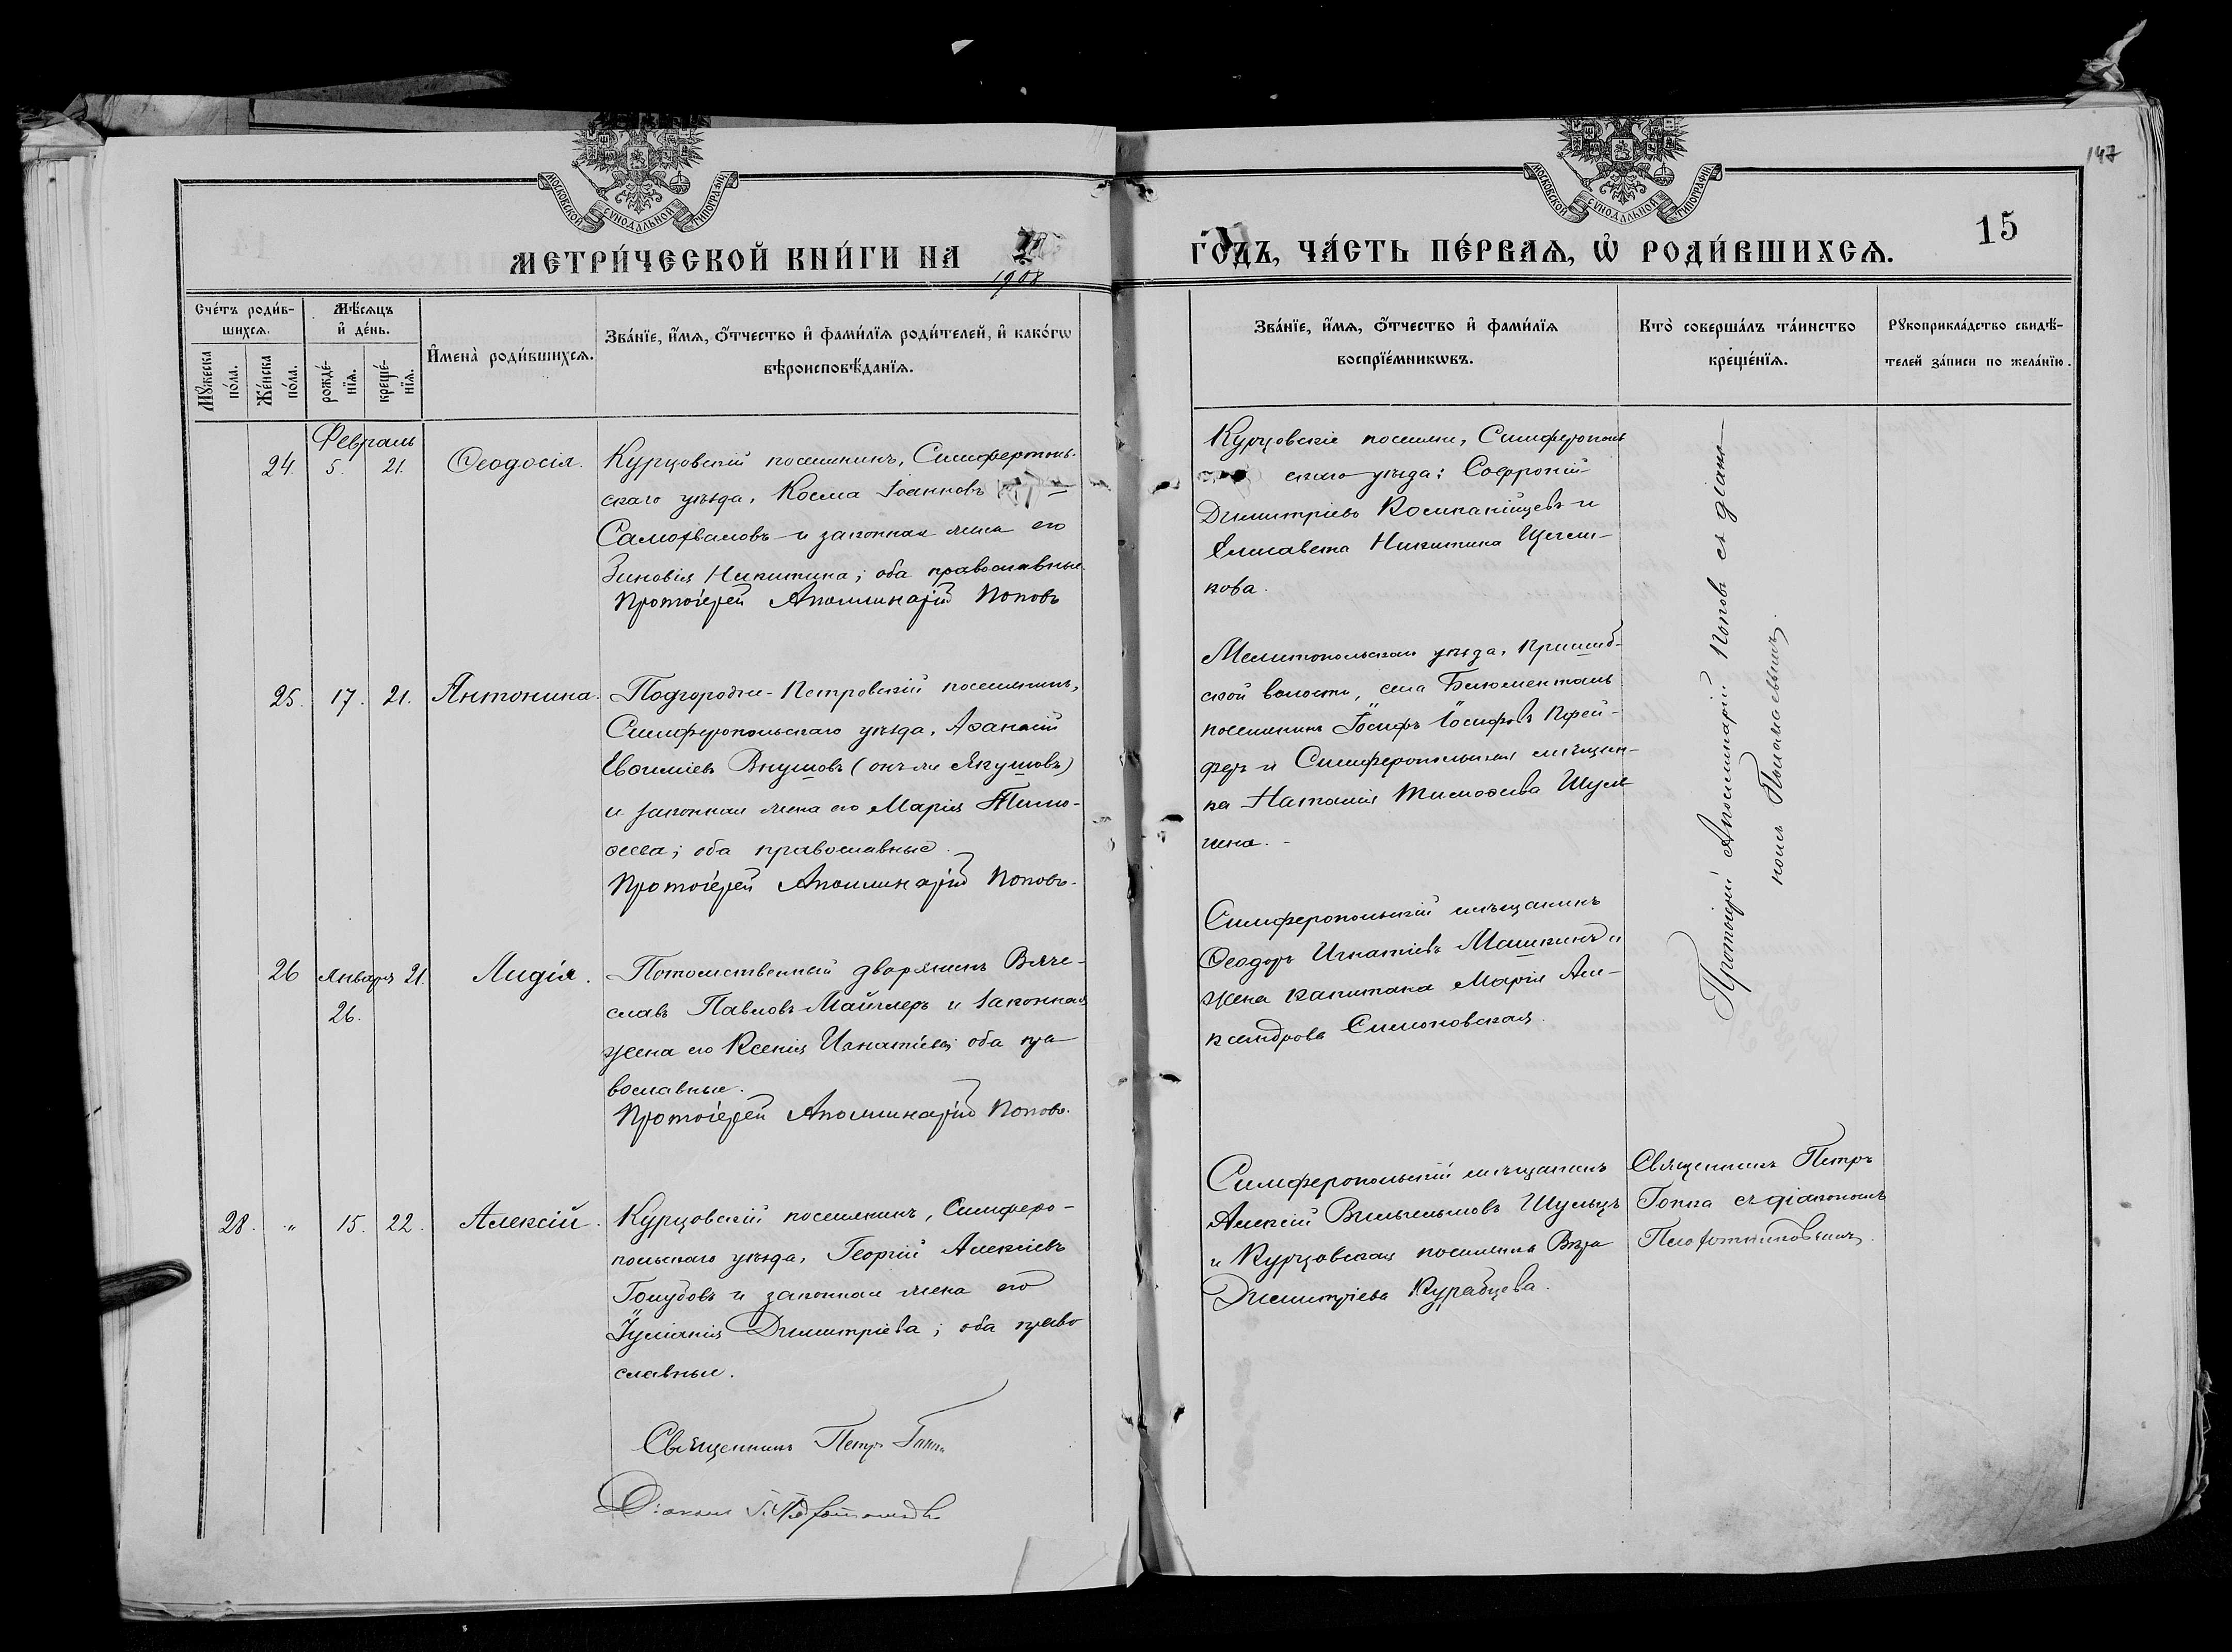 147
МОСКОВСКОЙ СѴНОДАЛЬНОЙ ТИПОГРАФІИ
МОСКОВСКОЙ СѴНОДАЛЬНОЙ ТИПОГРАФІИ
МЕТРИ́ЧЕСКОЙ КНИ́ГИ НА
1908
ГО́ДЪ, ЧА́СТЬ ПЕ́РВАѦ, Ѡ҆ РОДИ́ВШИХСѦ.
15
Сче́тъ роди́в-
шихсѧ.
Мꙋжеска по́ла.
Же́нска по́ла.
Мѣ́сѧцъ
и҆ де́нь.
рожде́-нїѧ.
креще́-нїѧ.
И҆мена̀ роди́вшихсѧ.
Зва́нїе, и҆́мѧ, ѻ҆́тчество и҆ фами́лїѧ роди́телей, и҆ како́гѡ
вѣроисповѣ́данїѧ.
Зва́нїе, и҆́мѧ, ѻ҆́тчество и҆ фами́лїѧ
воспрїе́мникѡвъ.
Кто̀ соверша́лъ та́инство
креще́нїѧ.
Рꙋкоприкла́дство свидѣ́-
телей за́писи по жела́нїю.
Февраль
24. 5. 21. Ѳеодосія.
Курцовскій поселянинъ, Симферополь-
скаго уѣзда, Косма Іоанновъ
Самохваловъ и законная жена его
Зиновія Никитина; оба православные.
Протоіерей Аполлинарій Поповъ
Курцовскіе поселяне, Симферополь
скаго уѣзда: Софроній
Димитріевъ Компанійцевъ и
Елисавета Никитина Щегль-
кова.
25. 17. 21. Антонина.
Подгородне-Петровскій поселянинъ,
Симферопольскаго уѣзда, Аѳанасій
Евѳиміевъ Внушовъ (онъ-же Якушовъ)
и законная жена его Марія Тимо-
ѳеева; оба православные.
Протоіерей Аполлинарій Поповъ.
Мелитопольскаго уѣзда, Пришиб-
ской волости, села Блюменталь
поселянинъ Іосифъ Іосифовъ Пфей-
феръ и Симферопольская мѣщан-
ка Наталія Тимоѳеева Шуля-
гина.
26 Января 21. Лидія.
26.
Потомственный дворянинъ Вяче-
славъ Павловъ Майлеръ и законная
жена его Ксенія Игнатіева; оба пра-
вославные.
Протоіерей Аполлинарій Поповъ.
Симферопольскій мѣщанинъ
Ѳеодоръ Игнатіевъ Машкинъ и
жена капитана Марія Але-
ксандрова Симоновская.
Протоіерей Аполлинарій Поповъ съ діако-
номъ
28. " 15. 22. Алексій.
Курцовскій поселянинъ, Симферо-
польскаго уѣзда, Георгій Алексіевъ
Голубовъ и законная жена его
Іуліанія Димитріева; оба право
славные.
Священникъ Петръ Гопка
Діаконъ
Симферопольскій мѣщанинъ
Алексій Вильгельмовъ Шульцъ
и Курцовская поселянка Вѣра
Димитріева Курабцева.
Священникъ Петръ
Гопка съ діакономъ